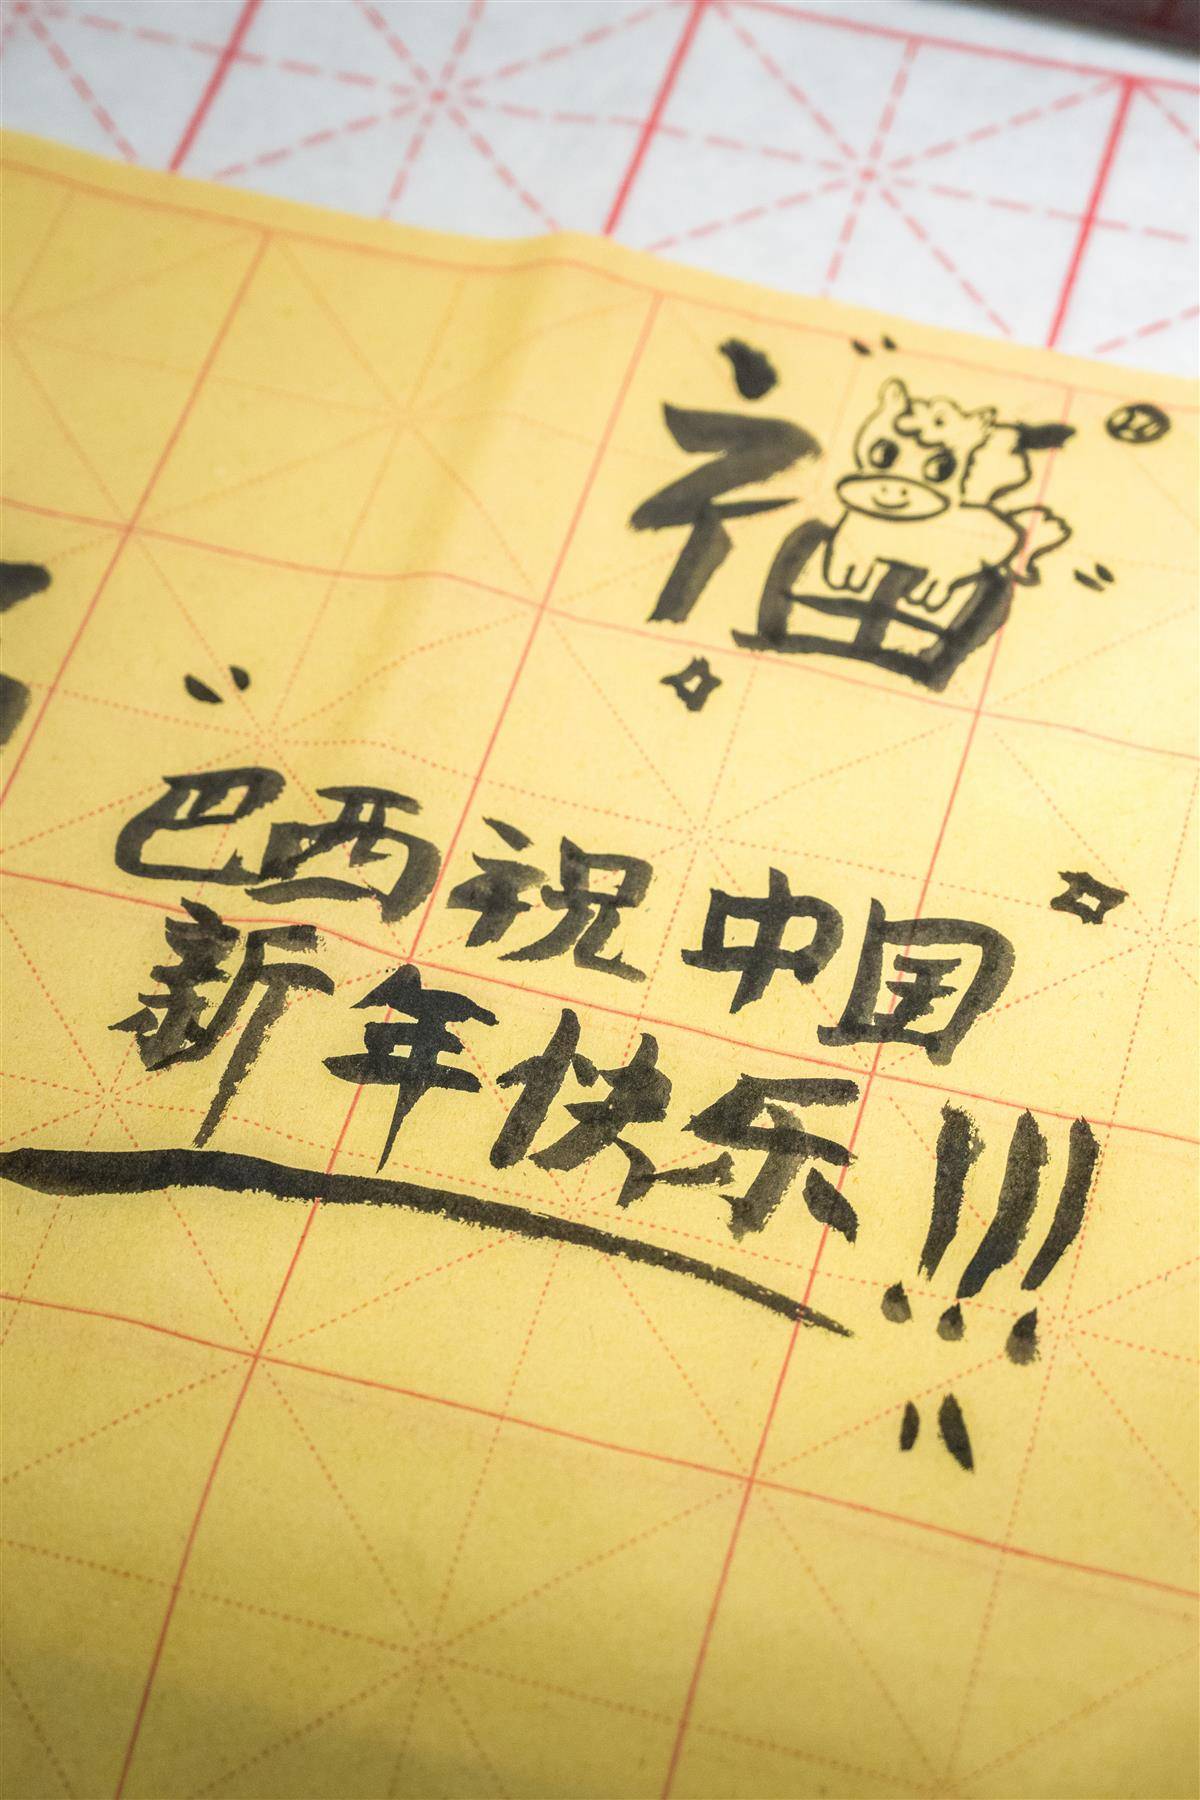 福
巴西祝中国
新年快乐!!!